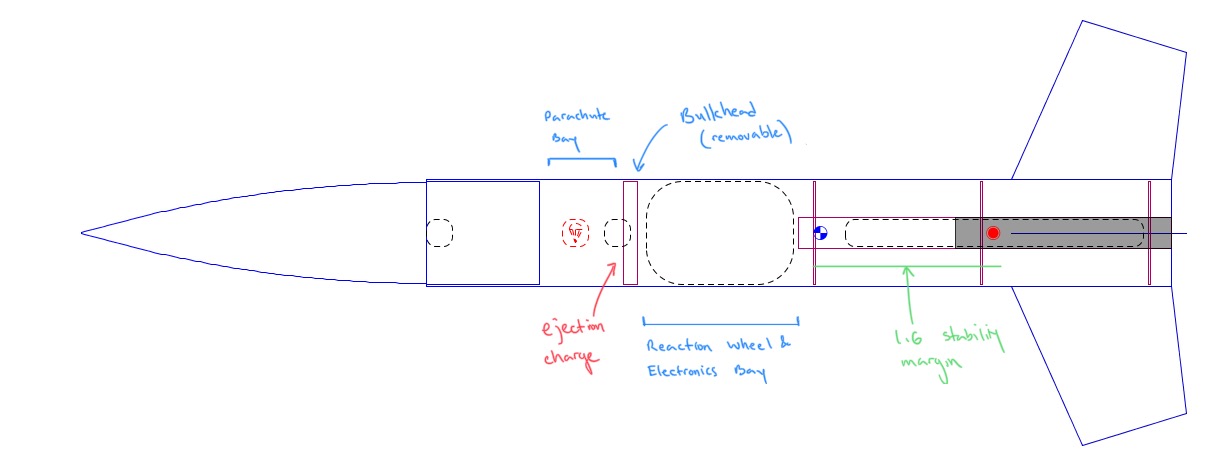 Parachute
Bay
Bulkhead
(removable)
ejection
charge
Reaction wheel &
Electronics Bay
1.6 stability
margin